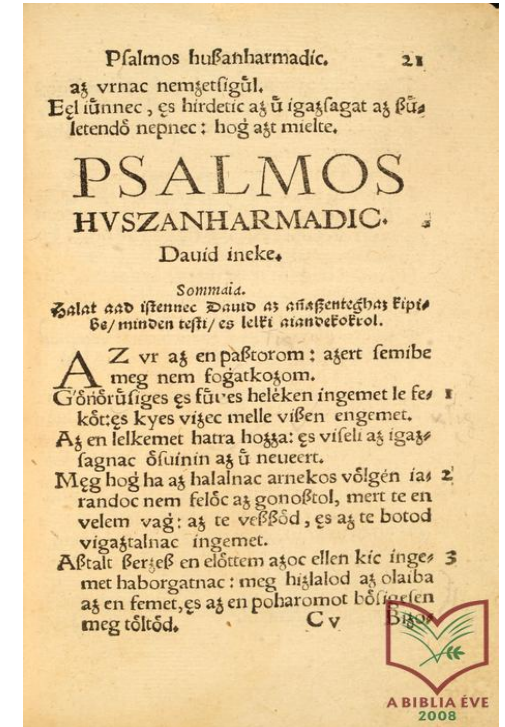 Pſalmos hußanharmadic. 21
aʒ vrnac nemʒetſigu̇l.
Eęl iu̇nnec, ęs hirdetic aʒ u̇ igaʒſagat aʒ ßu̇⸗
letendȯ nepnec: hoġ aʒt mielte.
PSALMOS
HVSZANHARMADIC.
Dauid ineke.
Sommaia.
Halat aad iſtennec Dauid az añaßenteġhaz kipi⸗
be/ minden teſti/ es lelki aiandekokrol.
AZ vr aʒ en paßtorom: aʒert ſemibe
meg nem foġatkoʒom.
Ġȯnȯru̇ſiges ęs fu̇ves helėken ingemet le fe⸗ 1
kȯt: ęs kyes viʒec melle vißen engemet.
Aʒ en lelkemet hatra hoʒʒa: ęs viſeli aʒ igaʒ⸗
ſagnac ȯſuinin aʒ u̇ neueert.
Męg hoġ ha aʒ halalnac arnekos vȯlġėn ia⸗ 2
randoc nem felȯc aʒ gonoßtol, mert te en
velem vaġ: aʒ te veßßȯd, ęs aʒ te botod
vigaʒtalnac ingemet.
Aßtalt ßerʒeß en elȯttem aʒoc ellen kic inge⸗ 3
met haborgatnac: meg hiʒlalod aʒ olaiba
aʒ en femet, ęs aʒ en poharomot bȯſigeſen
meg tȯltȯd. C v Biʒo⸗
A BIBLIA ÉVE
2008